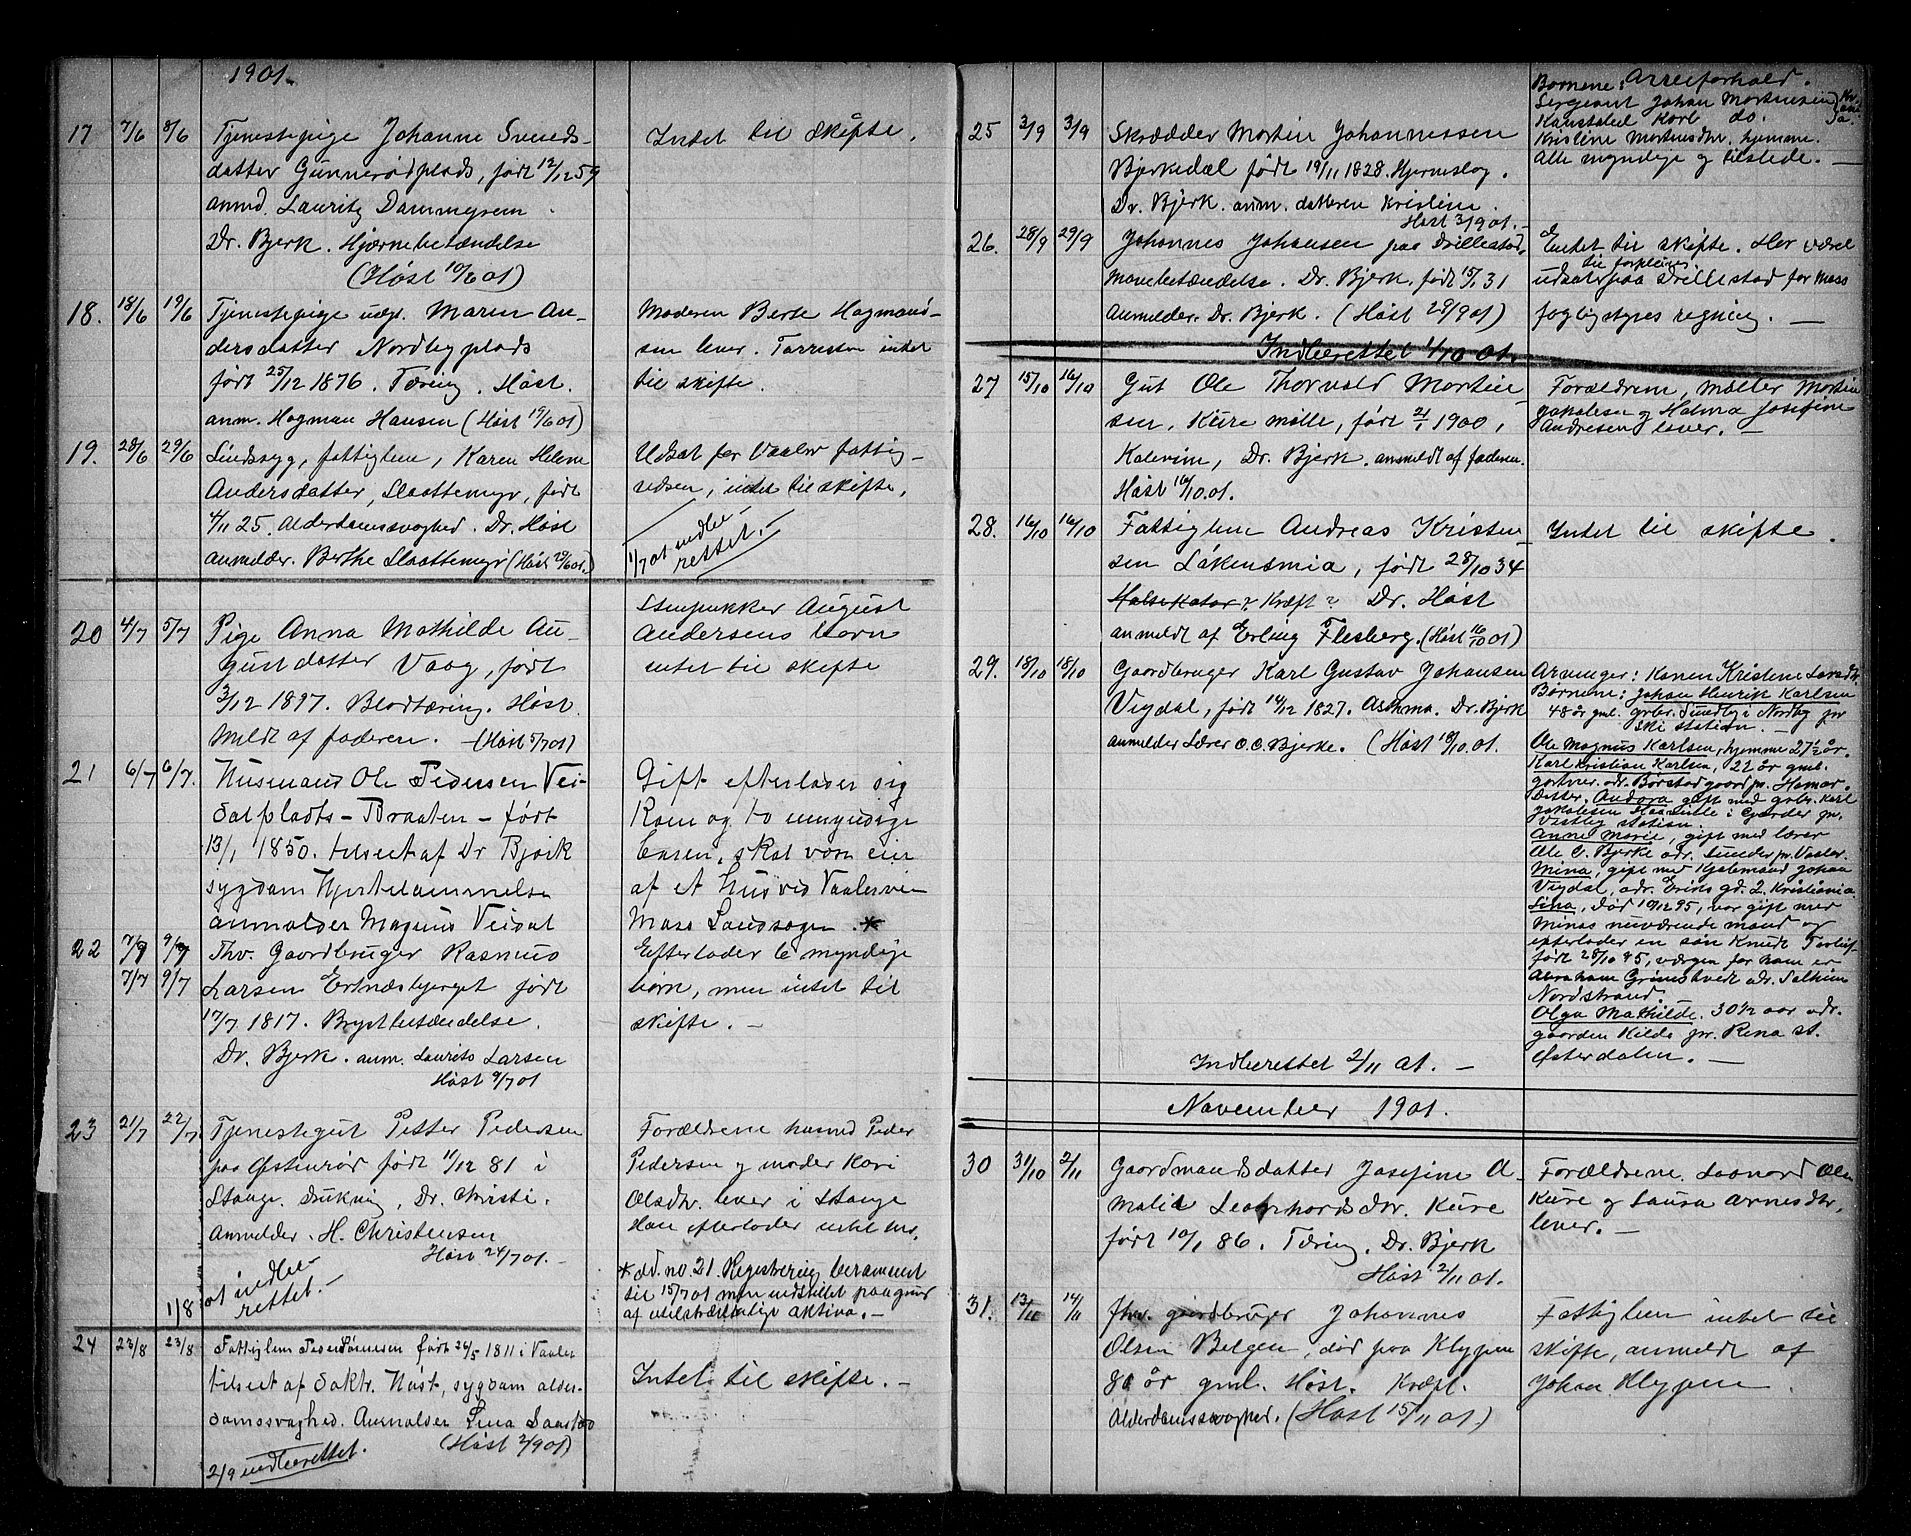 1901.
17 7/6 8/6 Tjenestepige Johanne Svends-
datter Gunnerødplads, født 12/12 59
anmd. Lauritz Dammyren.
Dr. Bjerk. Hjærnebetændelse
(Høst 10/6 01)
Intet til skifte.
18. 18/6 19/6 Tjenestepige ugf. Maren An-
dersdatter Nordbyplads
født 25/12 1876. Tæring. Høst.
anm. Hagman Hansen (Høst 19/6 01)
Moderen Berte Hagmans-
sen lever. Forresten intet
til skifte.
19. 28/6 29/6 Sindssyg, fattiglem, Karen Helene
Andersdatter, Slaattemyr, født
4/11 25. Alderdomssvaghed. Dr. Høst
anmelder. Berthe Slaattemyr (Høst 29/6 01.)
Udsat for Vaaler fattig-
væsen, intet til skifte.
1/7 01 indbe-
rettet.
20 4/7 5/7 Pige Anna Mathilde Au-
gustdatter Vaag, født
3/12 1897. Blodtæring. Høst.
Meldt af faderen. (Høst 5/7 01)
Stenpukker August
Andersens barn
intet til skifte
21 6/7 6/7. Husmand Ole Pedersen Vei-
dalplads - Braaten - født
13/1 1850. tilseet af Dr Bjerk
sygdom Hjertelammelse
anmelder Magnus Veidal
Gift efterlader sig
Kone og to umyndige
af et Hus ved Vaalervein
Moss Landsogn. *
22 7/7 9/7 Fhv. Gaardbruger Rasmus
7/7 9/7 Larsen Ertnæsbjerget født
17/7 1817. Brystbetændelse.
Dr. Bjerk. anm. Laurits Larsen
Høst 9/7 01
Efterlader 6 myndige
børn, men intet til
skifte. -
23 21/7 22/7 Tjenestegut Petter Pedersen
paa Østenrød født 11/12 81 i
Stange. Drukning, Dr. Christi.
Anmelder. H. Christensen
Høst 24/7 01. -
1/8 01 indbe-
rettet.
Forældrene husmd Peder
Pedersen og moder Kari
Olsdtr. lever i Stange
Han efterlader intet
* Ad. no. 21. Registrering berammet
til 15/7 01 men indstillet paa grund
af utilstrækkelige aktiva. -
24 23/8 23/8 Fattiglem Peder Tønnesen født 26/5 1811 i Vaaler
tilseet af Doktr. Høst, sygdom alder-
domssvaghed. Anmelder Lina
(Høst 2/9 01)
2/9 indberettet.
Intet til skifte. -
25 3/9 3/9 Skrædder Martin Johannessen
Bjerkedal født 19/11 1828. Hjerneslag.
Dr. Bjerk. anm. datteren Kristine.
Høst 3/9 01. -
Børnene: Arveforhold.
Sergeant Johan Martinsen
Konstabel Karl do.
Kristine Martinsdtr. hjemme.
Alle myndige og tilstede. -
26. 28/9 29/9 Johannes Johansen paa Dillestad,
Mavebetændelse. Dr. Bjerk. født 15/1 31
Anmelder. Dr. Bjerk. (Høst 29/9 01)
Intet til skifte. Har været
til forpleining
udsat paa Dillestad for Moss
fattigstyres regning. -
Indberettet 1/10 01.
27 15/10 16/10 Gut Ole Thorvald Martin-
sen, Kure mølle, født 21/1 1900,
Kolerine, Dr. Bjerk. anmeldt af faderen.
Høst 16/10.01.
Forældrene, møller Martin
Jakobsen og Halma Josefine
Andresen lever. -
28. 16/10 16/10 Fattiglem Andreas Kristen-
sen Løkensmia, født 28/10 34
Halsekatar? Kræft? Dr. Høst
anmeldt af Erling Flesberg. (Høst 16/10 01)
Intet til skifte.
29. 18/10 18/10 Gaardbruger Karl Gustav Johansen
Vigdal, født 14/12 1827. Asthma. Dr. Bjerk
anmelder Lærer O. C. Bjerke. (Høst 18/10.01.
Arvinger: Konen Kristine Larsdtr.
Børnene: Johan Henrik Karlsen
48 år gml. grbr. Sundby i Nordby pr
Ski station. -
Ole Magnus Karlsen, hjemme 27 1/2 år.
Karl Kristian Karlsen, 22 år gml.
gartner. adr. Børstad gaard pr. Hamar.
Datter, Andora gift med grbr. Karl
Jakobsen Haaville i Garder pr.
Vestby station.
Anne Marie, gift med lærer
Ole C. Bjerke adr. Sunder pr. Vaaler.
Mina, gift med Kjøbmand Johan
Vigdal, adr. Eriks gd. 2. Kristiania
Lina, død 10/12 95, var gift med
Minas nuværende mand og
efterlader en søn Knut Torleif
født 25/10 95, værgen for ham er
Abraham Grimstvedt adr. Solheim
Nordstrand.
Olga Mathilde. 30 1/2 aar adr.
gaarden Kilde pr. Rena st.
Østerdalen. -
Indberettet 2/11 01. -
November 1901.
30 31/10 2/11 Gaardmandsdatter Josefine A-
malie Leonhardsdtr. Kure
født 10/1 86. Tæring. Dr. Bjerk
Høst 2/11 01.
Forældrene Leonard Olsen
Kure og Laura Arnesdtr,
lever. -
31. 13/11 14/11 fhv. gårdbruger Johannes
Olsen Belgen, død paa Klypen
80 år gml. Høst. Kræft.
Alderdomssvaghed. (Høst 15/11 01.)
Fattiglem intet til
skifte, anmeldt af
Johan Klypen.